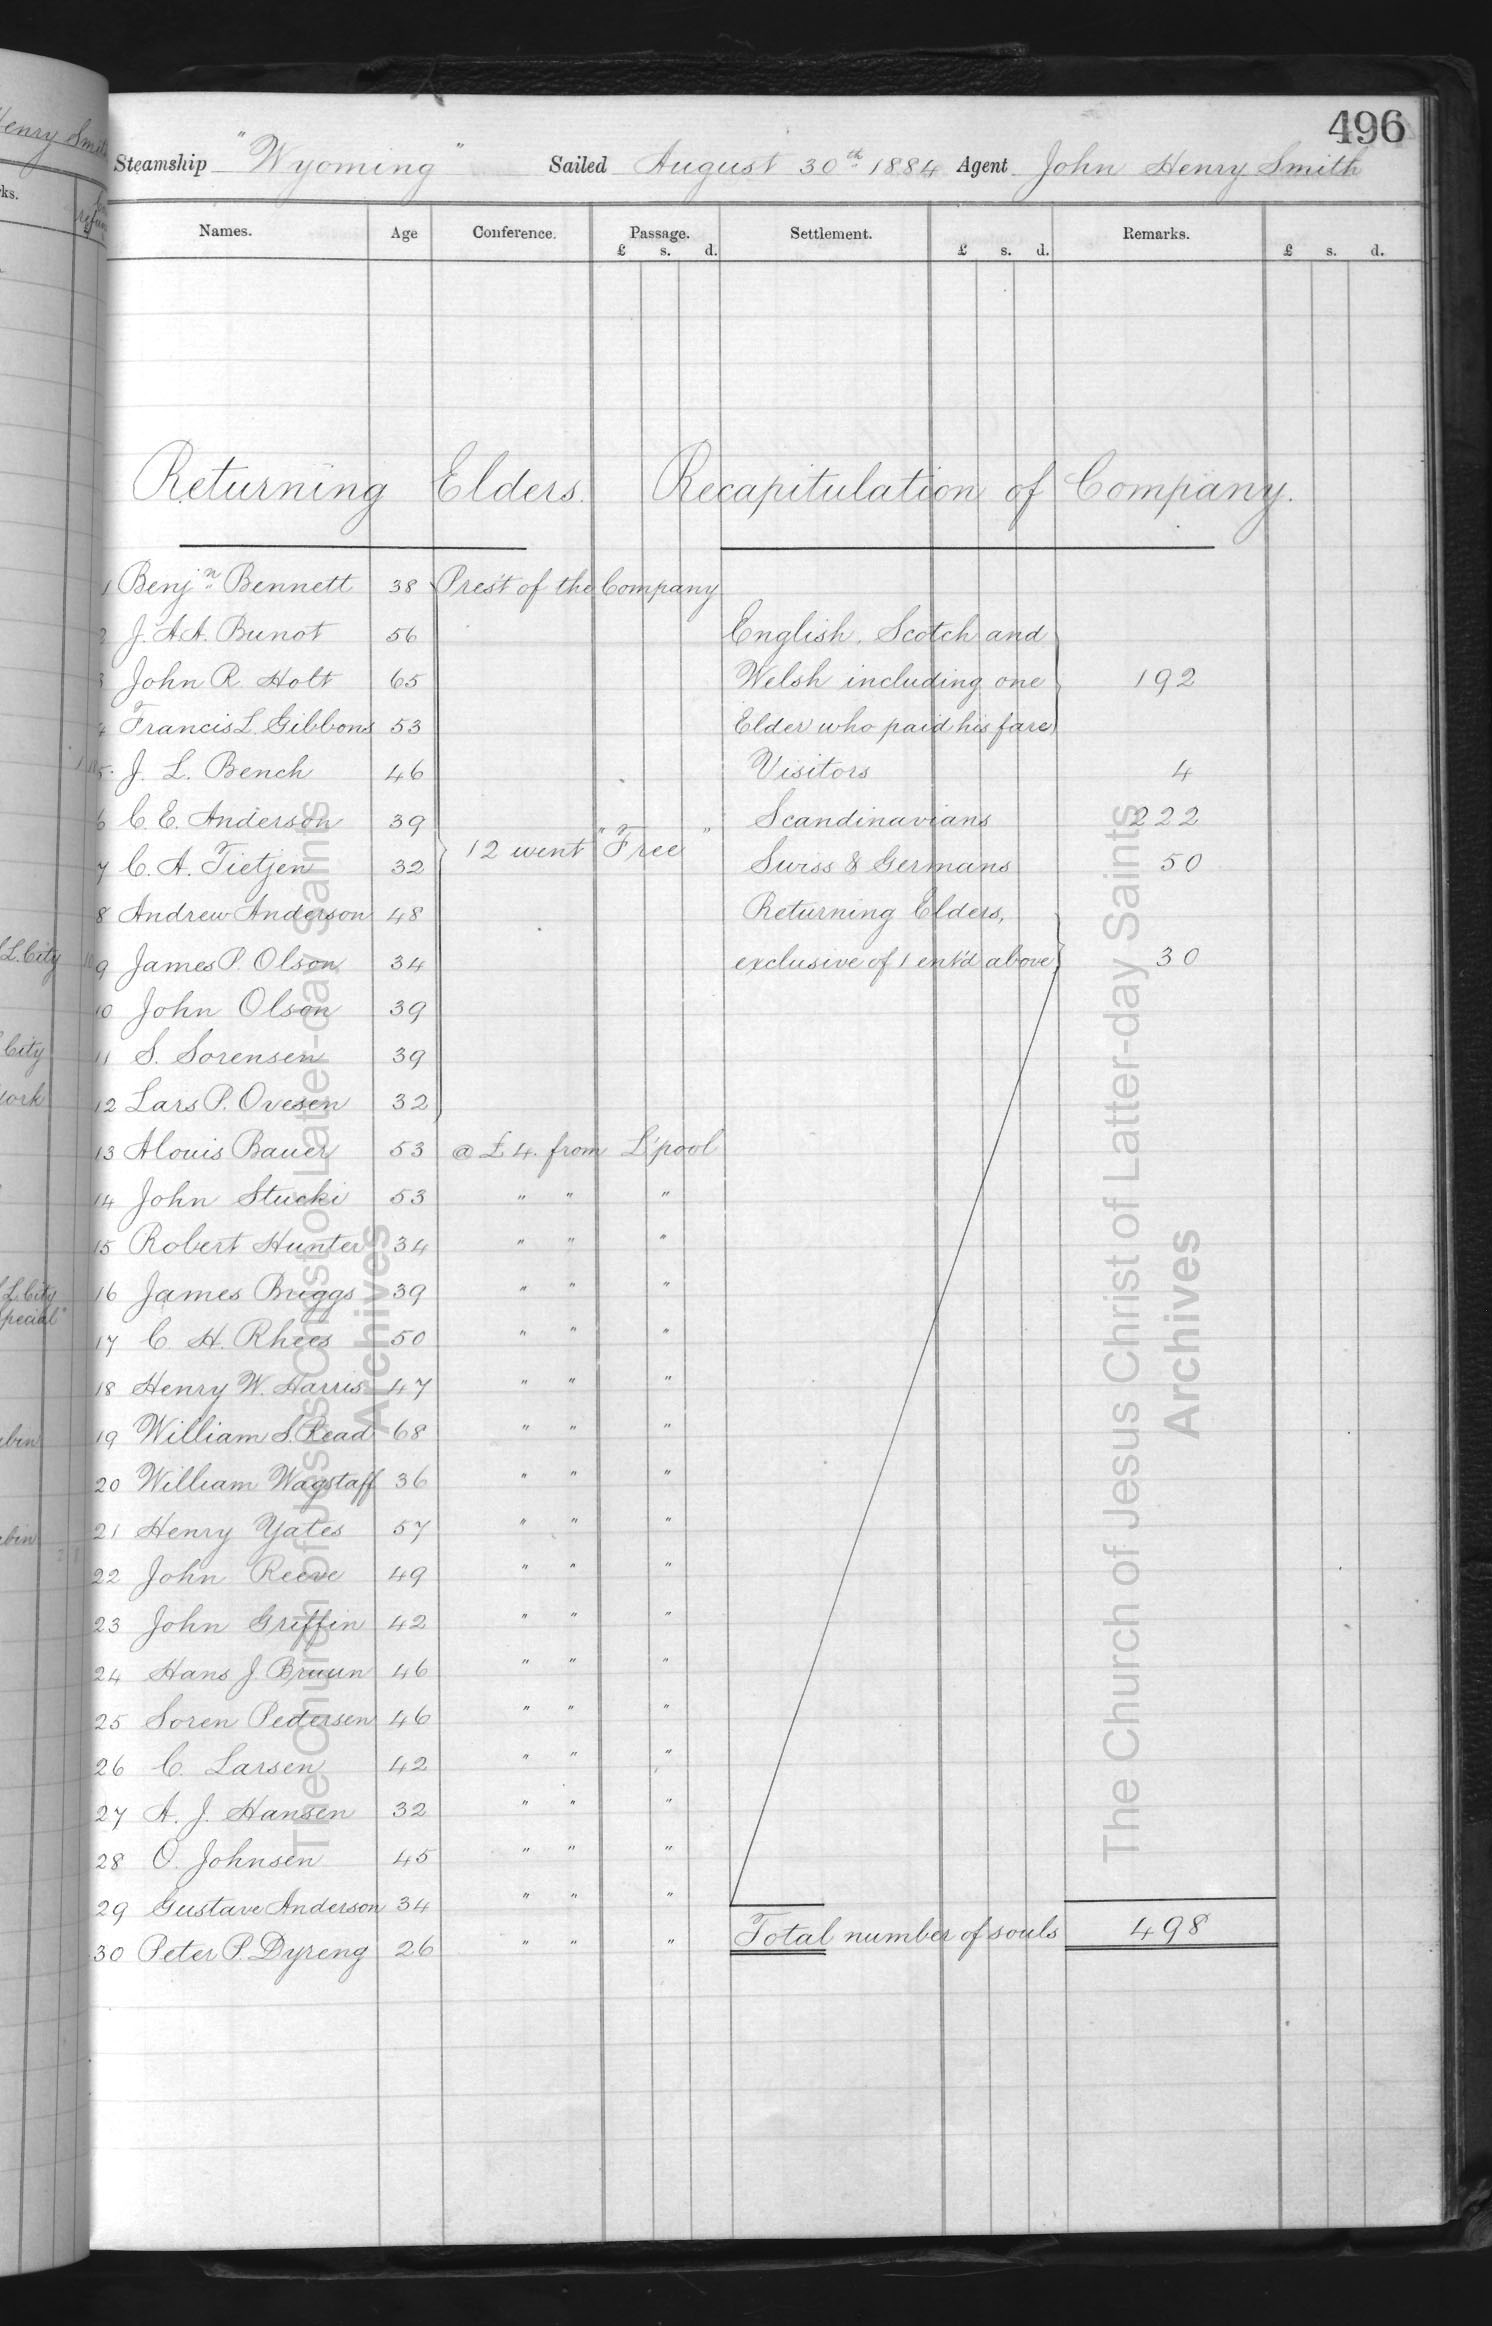 496
Steamship "Wyoming" Sailed August 30th 1884 Agent John Henry Smith
Names. Age Conference. Passage. Settlement. Remarks.
£ s. d. £ s. d. £ s. d.
Returning Elders. Recapitulation of Company.
1 Benjn Bennett 38 Prest of the Company
2 J. A. A. Bunot 56 English, Scotch and
3 John R. Holt 65 Welsh including one 192
4 Francis L. Gibbons 53 Elder who paid his fare
5 J. L. Bench 46 Visitors 4
6 C. E. Anderson 39 Scandinavians 222
12 went "Free"
7 C. A. Tietjen 32 Swiss & Germans 50
8 Andrew Anderson 48 Returning Elders,
9 James P. Olson 34 exclusive of 1 ent'd above 30
10 John Olson 39
11 S. Sorensen 39
12 Lars P. Ovesen 32
13 Alouis Bauer 53 @ £4. from L'pool
14 John Stucki 53 " " "
15 Robert Hunter 34 " " "
16 James Briggs 39 " " "
17 C. H. Rhees 50 " " "
18 Henry W. Harris 47 " " "
19 William S. Read 68 " " "
20 William Wagstaff 36 " " "
21 Henry Yates 57 " " "
22 John Reeve 49 " " "
23 John Griffin 42 " " "
24 Hans J. Bruun 46 " " "
25 Soren Pedersen 46 " " "
26 C. Larsen 42 " " "
27 A. J. Hansen 32 " " "
28 O. Johnsen 45 " " "
29 Gustave Anderson 34 " " "
30 Peter P. Dyreng 26 " " " Total number of souls 498
The Church of Jesus Christ of Latter-day Saints
Archives
The Church of Jesus Christ of Latter-day Saints
Archives